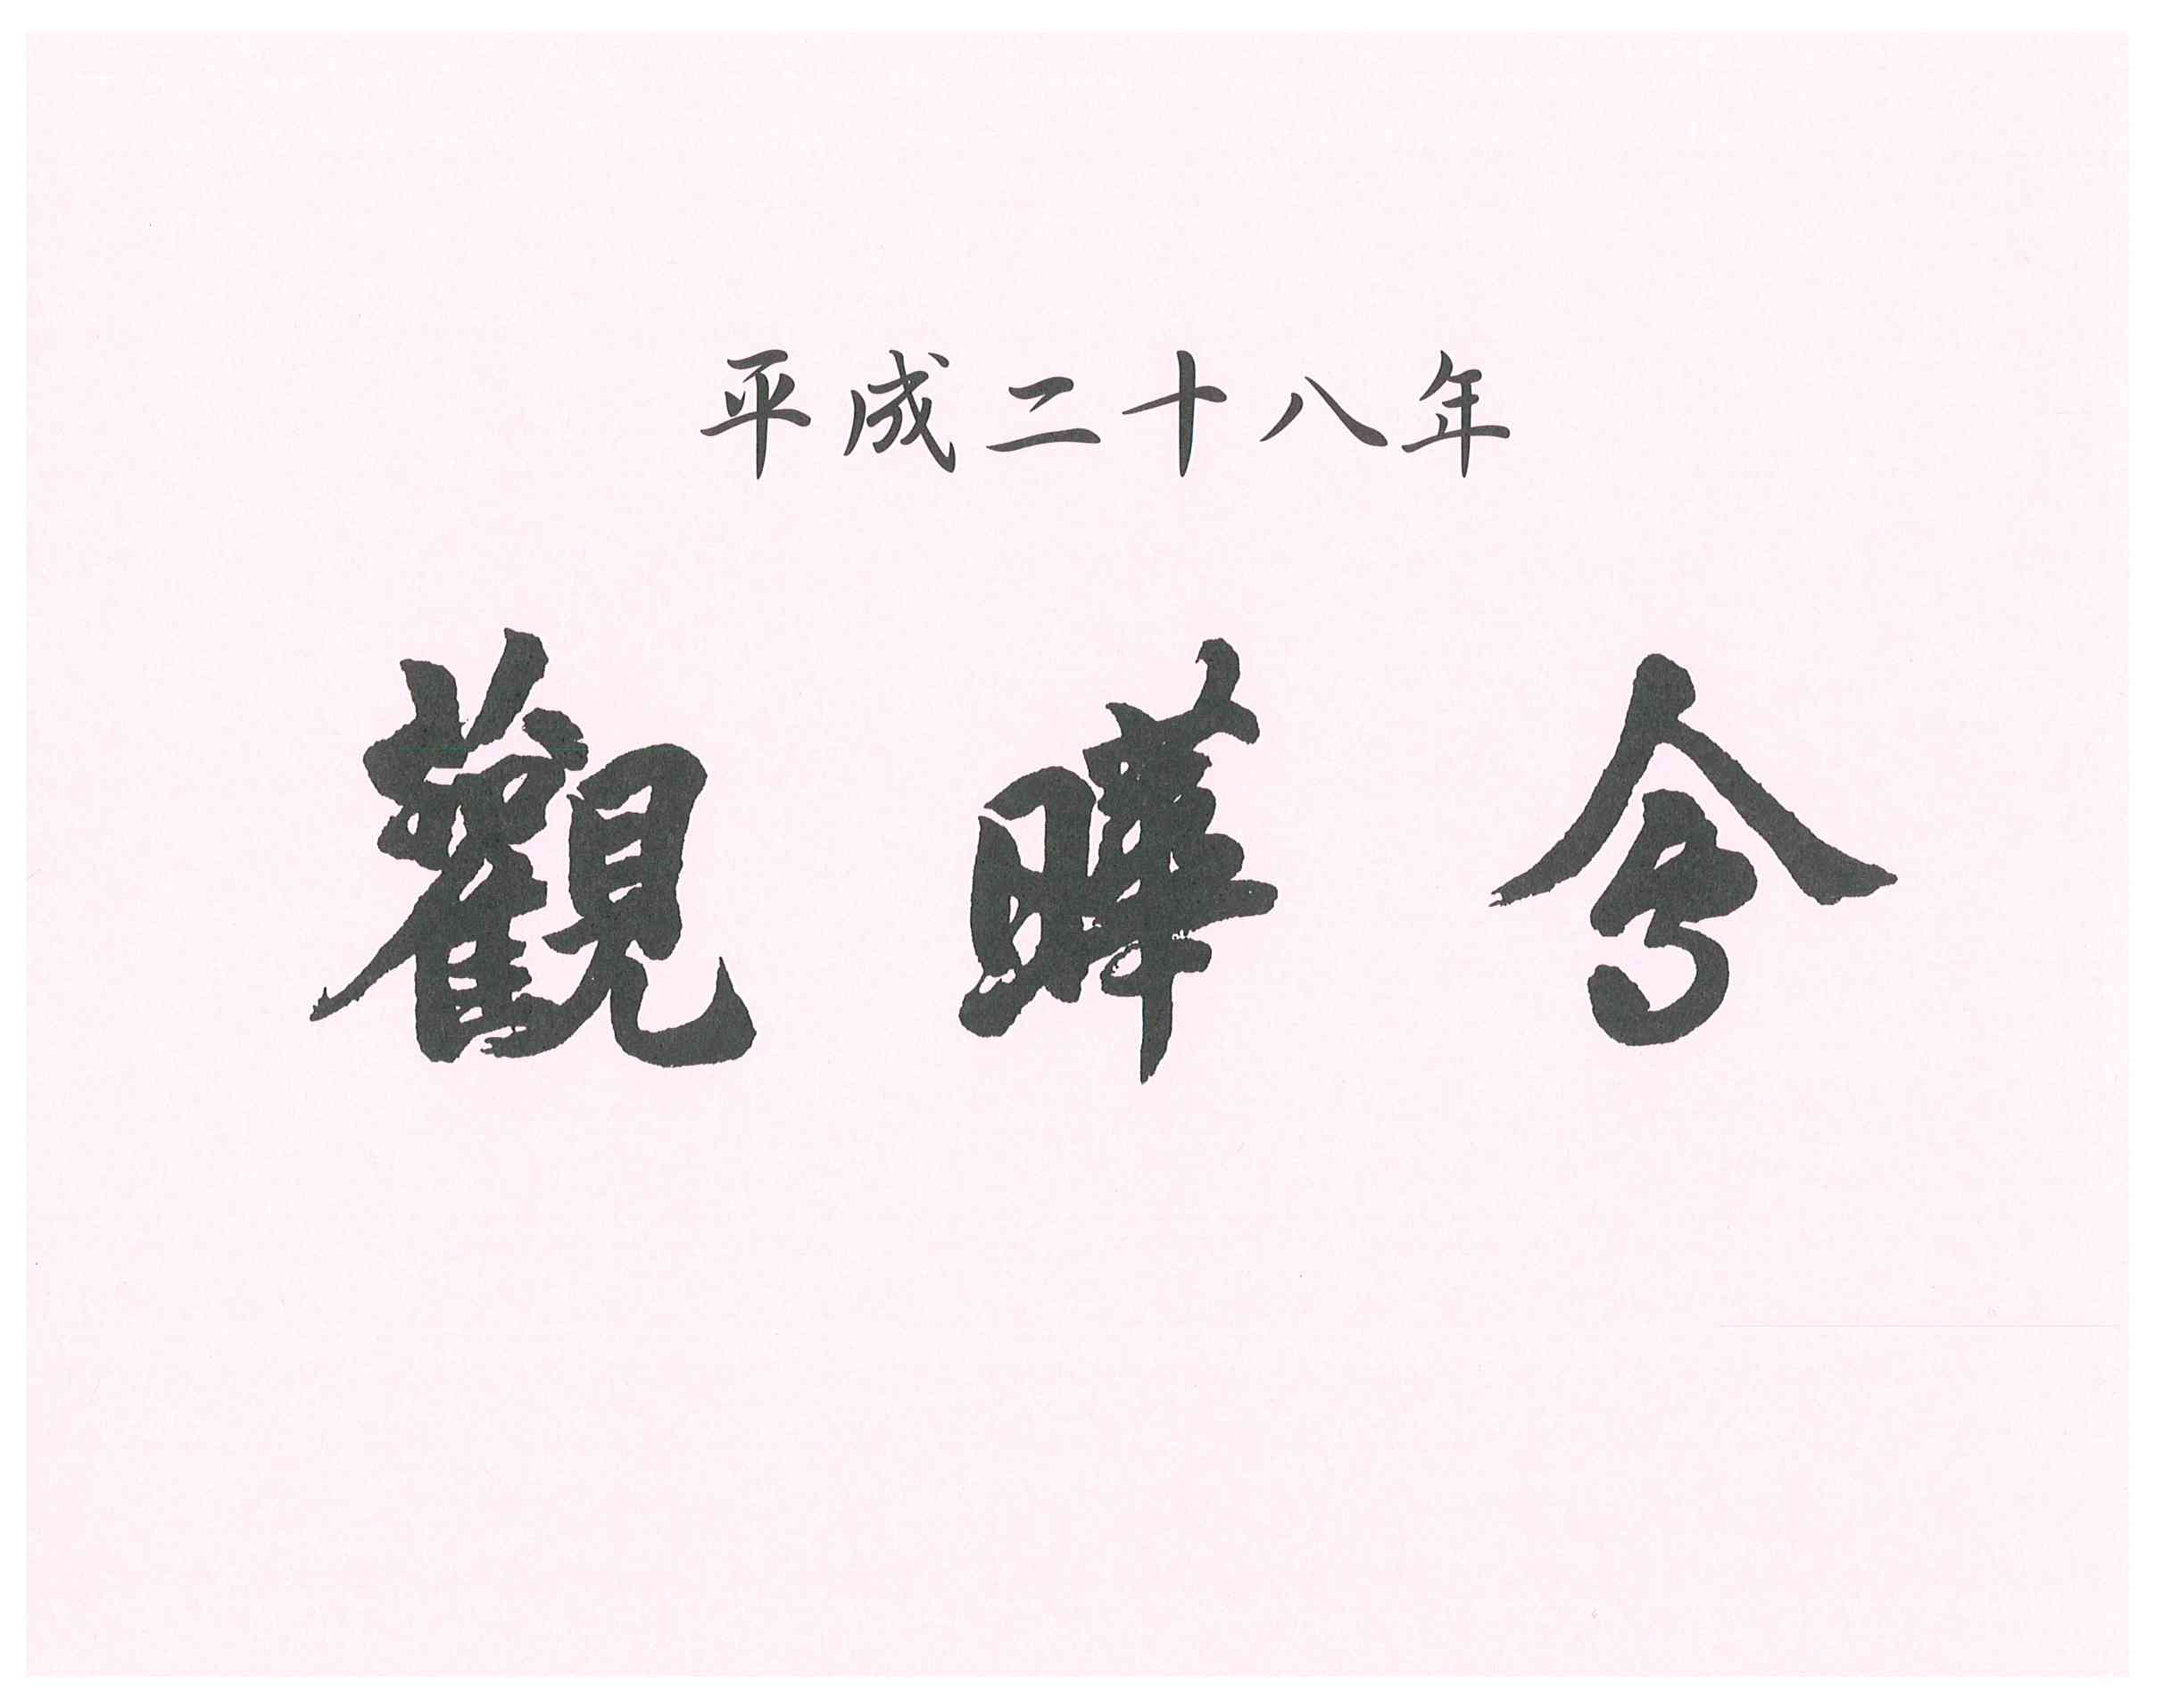 平成二十八年
觀曄會